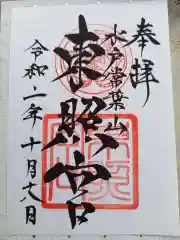 奉拝
水戸常葉山
東照宮
令和二年十月十八日